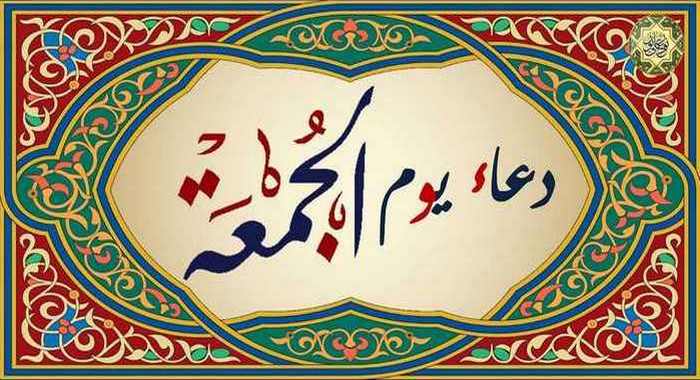 دعاء يوم الجُمعَة